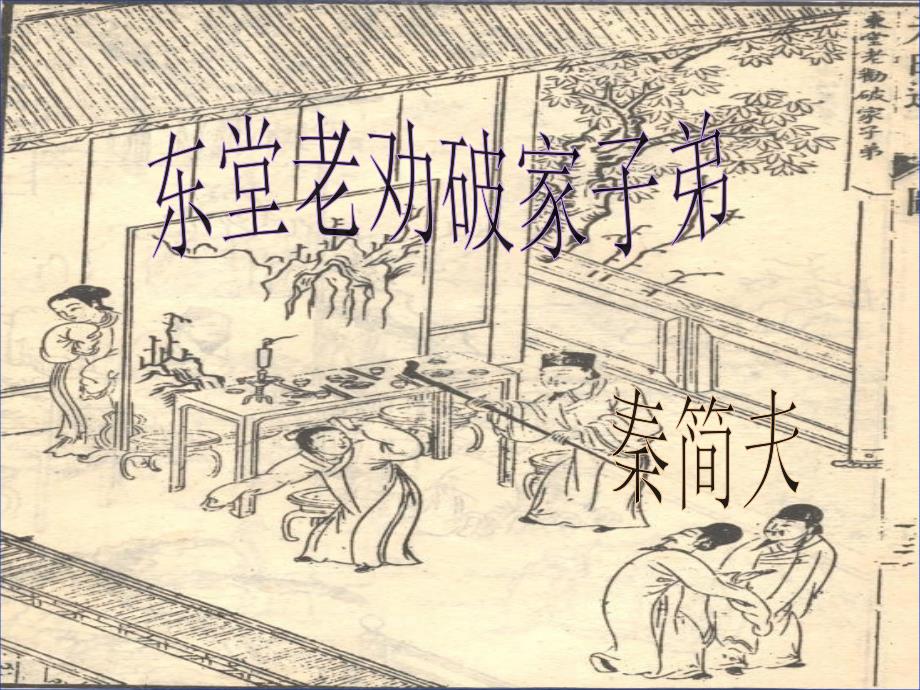 东堂老劝破家子弟
秦简夫
東堂老勸破家子弟